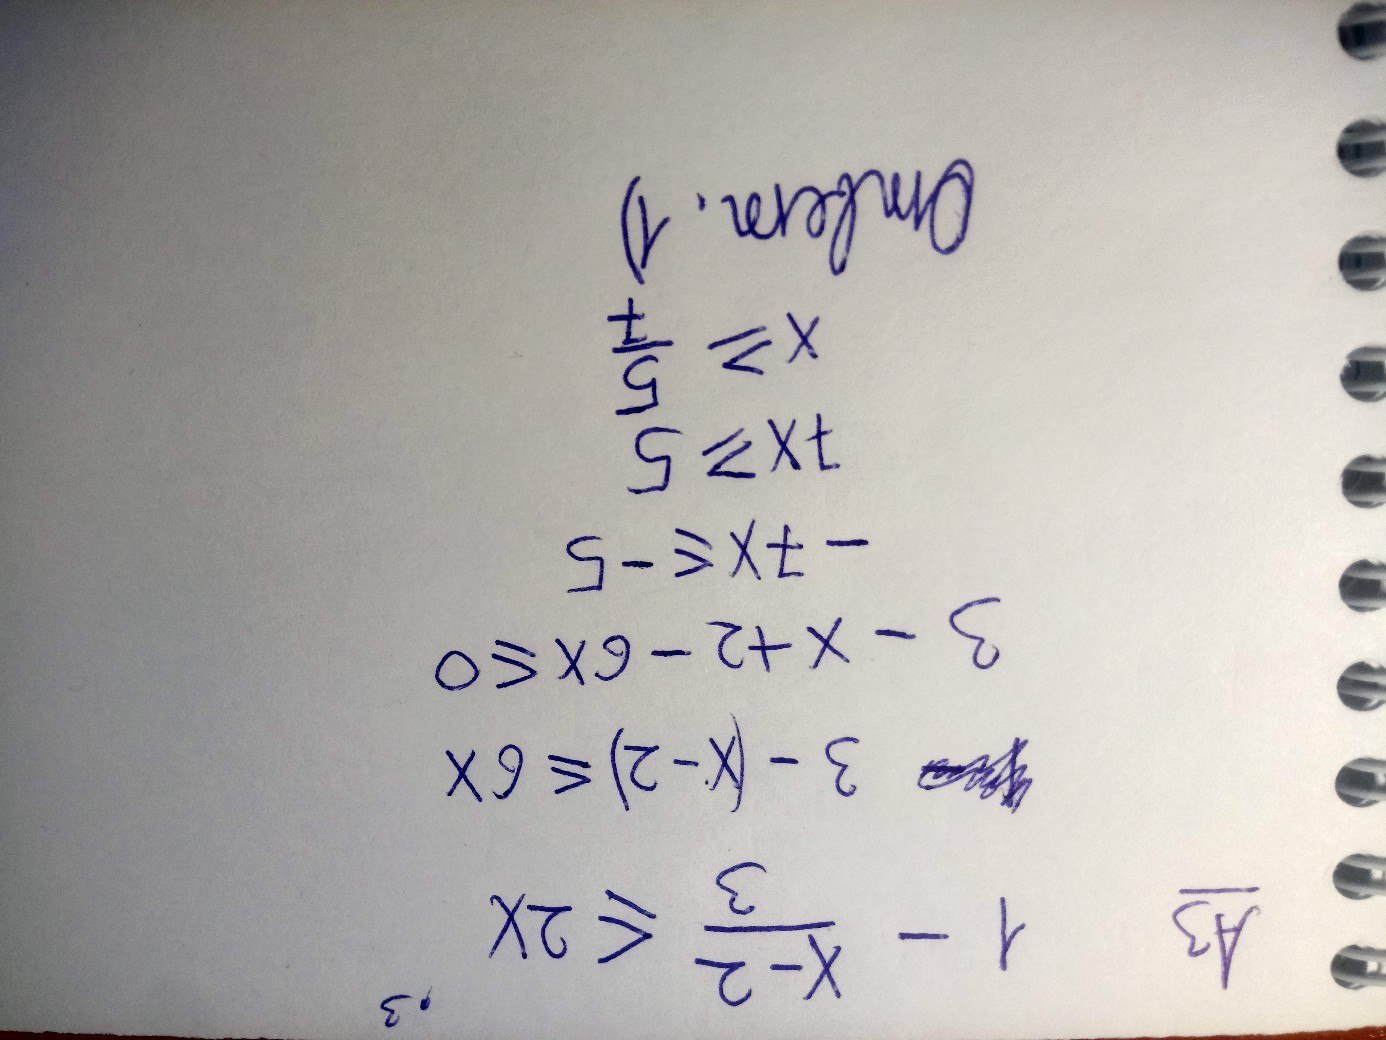 ·3
A3 1 - \frac{x-2}{3} ⩽ 2x
3 - (x-2) ⩽ 6x
3 - x + 2 - 6x ⩽ 0
- 7x ⩽ -5
7x ⩾ 5
x ⩾ \frac{5}{7}
Ответ. 1)